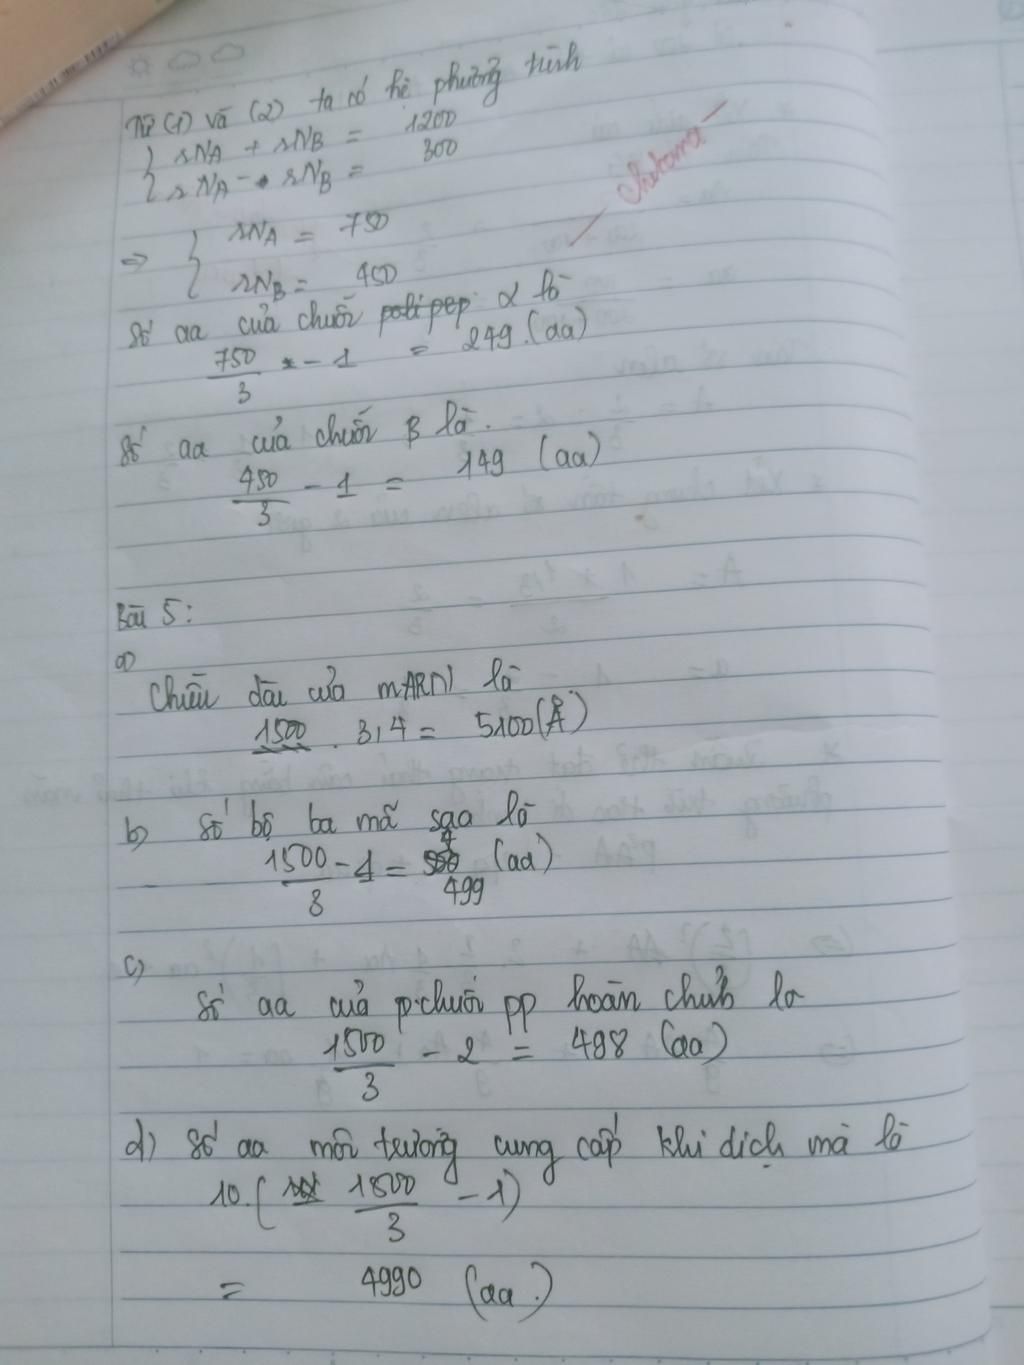 Từ (1) và (2) ta có hệ phương trình
{ rNA + rNB = 1200
{ rNA - rNB = 300
Chitoma
=> { rNA = 750
{ rNB = 450
Số aa của chuỗi polipep α là
750/3 - 1 = 249 (aa)
Số aa của chuỗi β là.
450/3 - 1 = 149 (aa)
Bài 5:
a)
Chiều dài của mARN là
1500 . 3,4 = 5100 (Å)
b) Số bộ ba mã sao là
1500/3 - 1 = 499 (aa)
c)
Số aa của p.chuỗi pp hoàn chỉnh là
1500/3 - 2 = 498 (aa)
d) Số aa môi trường cung cấp khi dịch mã là
10. ( 1500/3 - 1)
= 4990 (aa.)